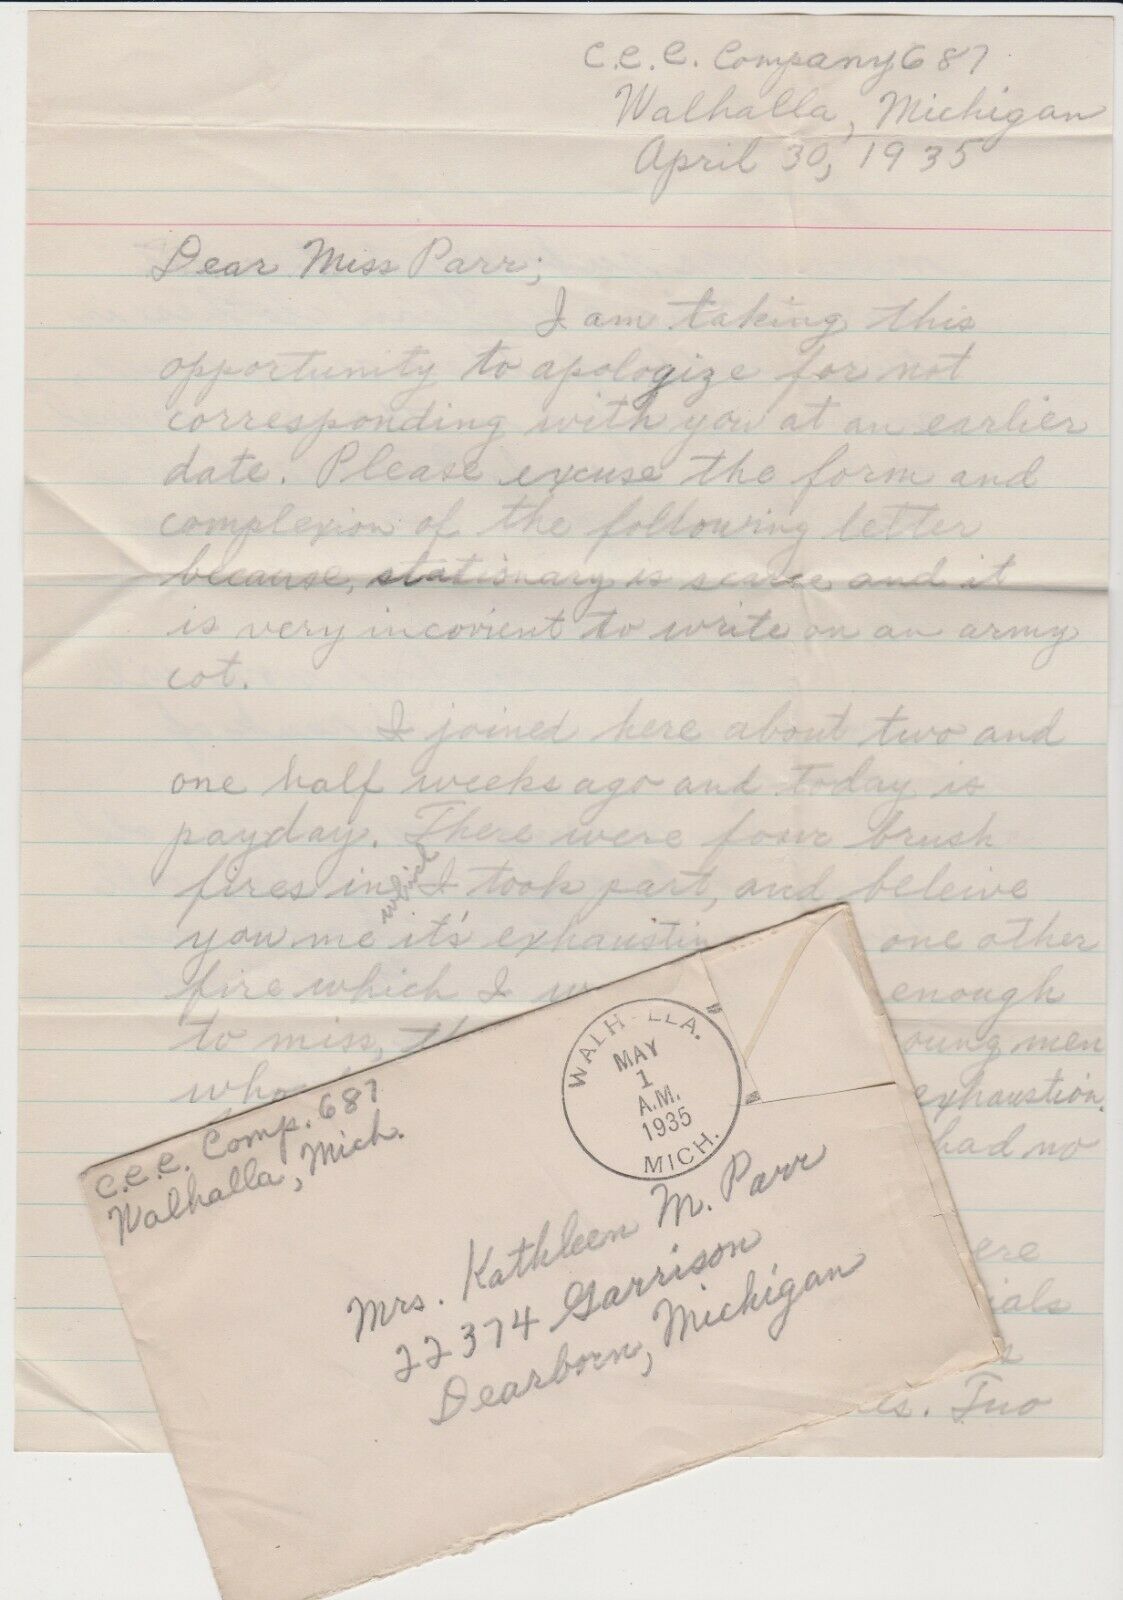 C.C.C. Company 687
Walhalla, Michigan
April 30, 1935
Dear Miss Parr;
I am taking this
opportunity to apologize for not
corresponding with you at an earlier
date. Please excuse the form and
complexion of the following letter
because, stationary is scarce and it
is very incovient to write on an army
cot.
I joined here about two and
one half weeks ago and today is
payday. There were four brush
fires in which I took part, and beleive
you me it's exhaustin one other
fire which I w enough
to miss, th oung men
who exhaustion.
had no
ere
ials
es. Two
C.C.C. Comp. 687
Walhalla, Mich.
WALH-LLA.
MAY
1
A.M.
1935
MICH.
Mrs. Kathleen M. Parr
22374 Garrison
Dearborn, Michigan